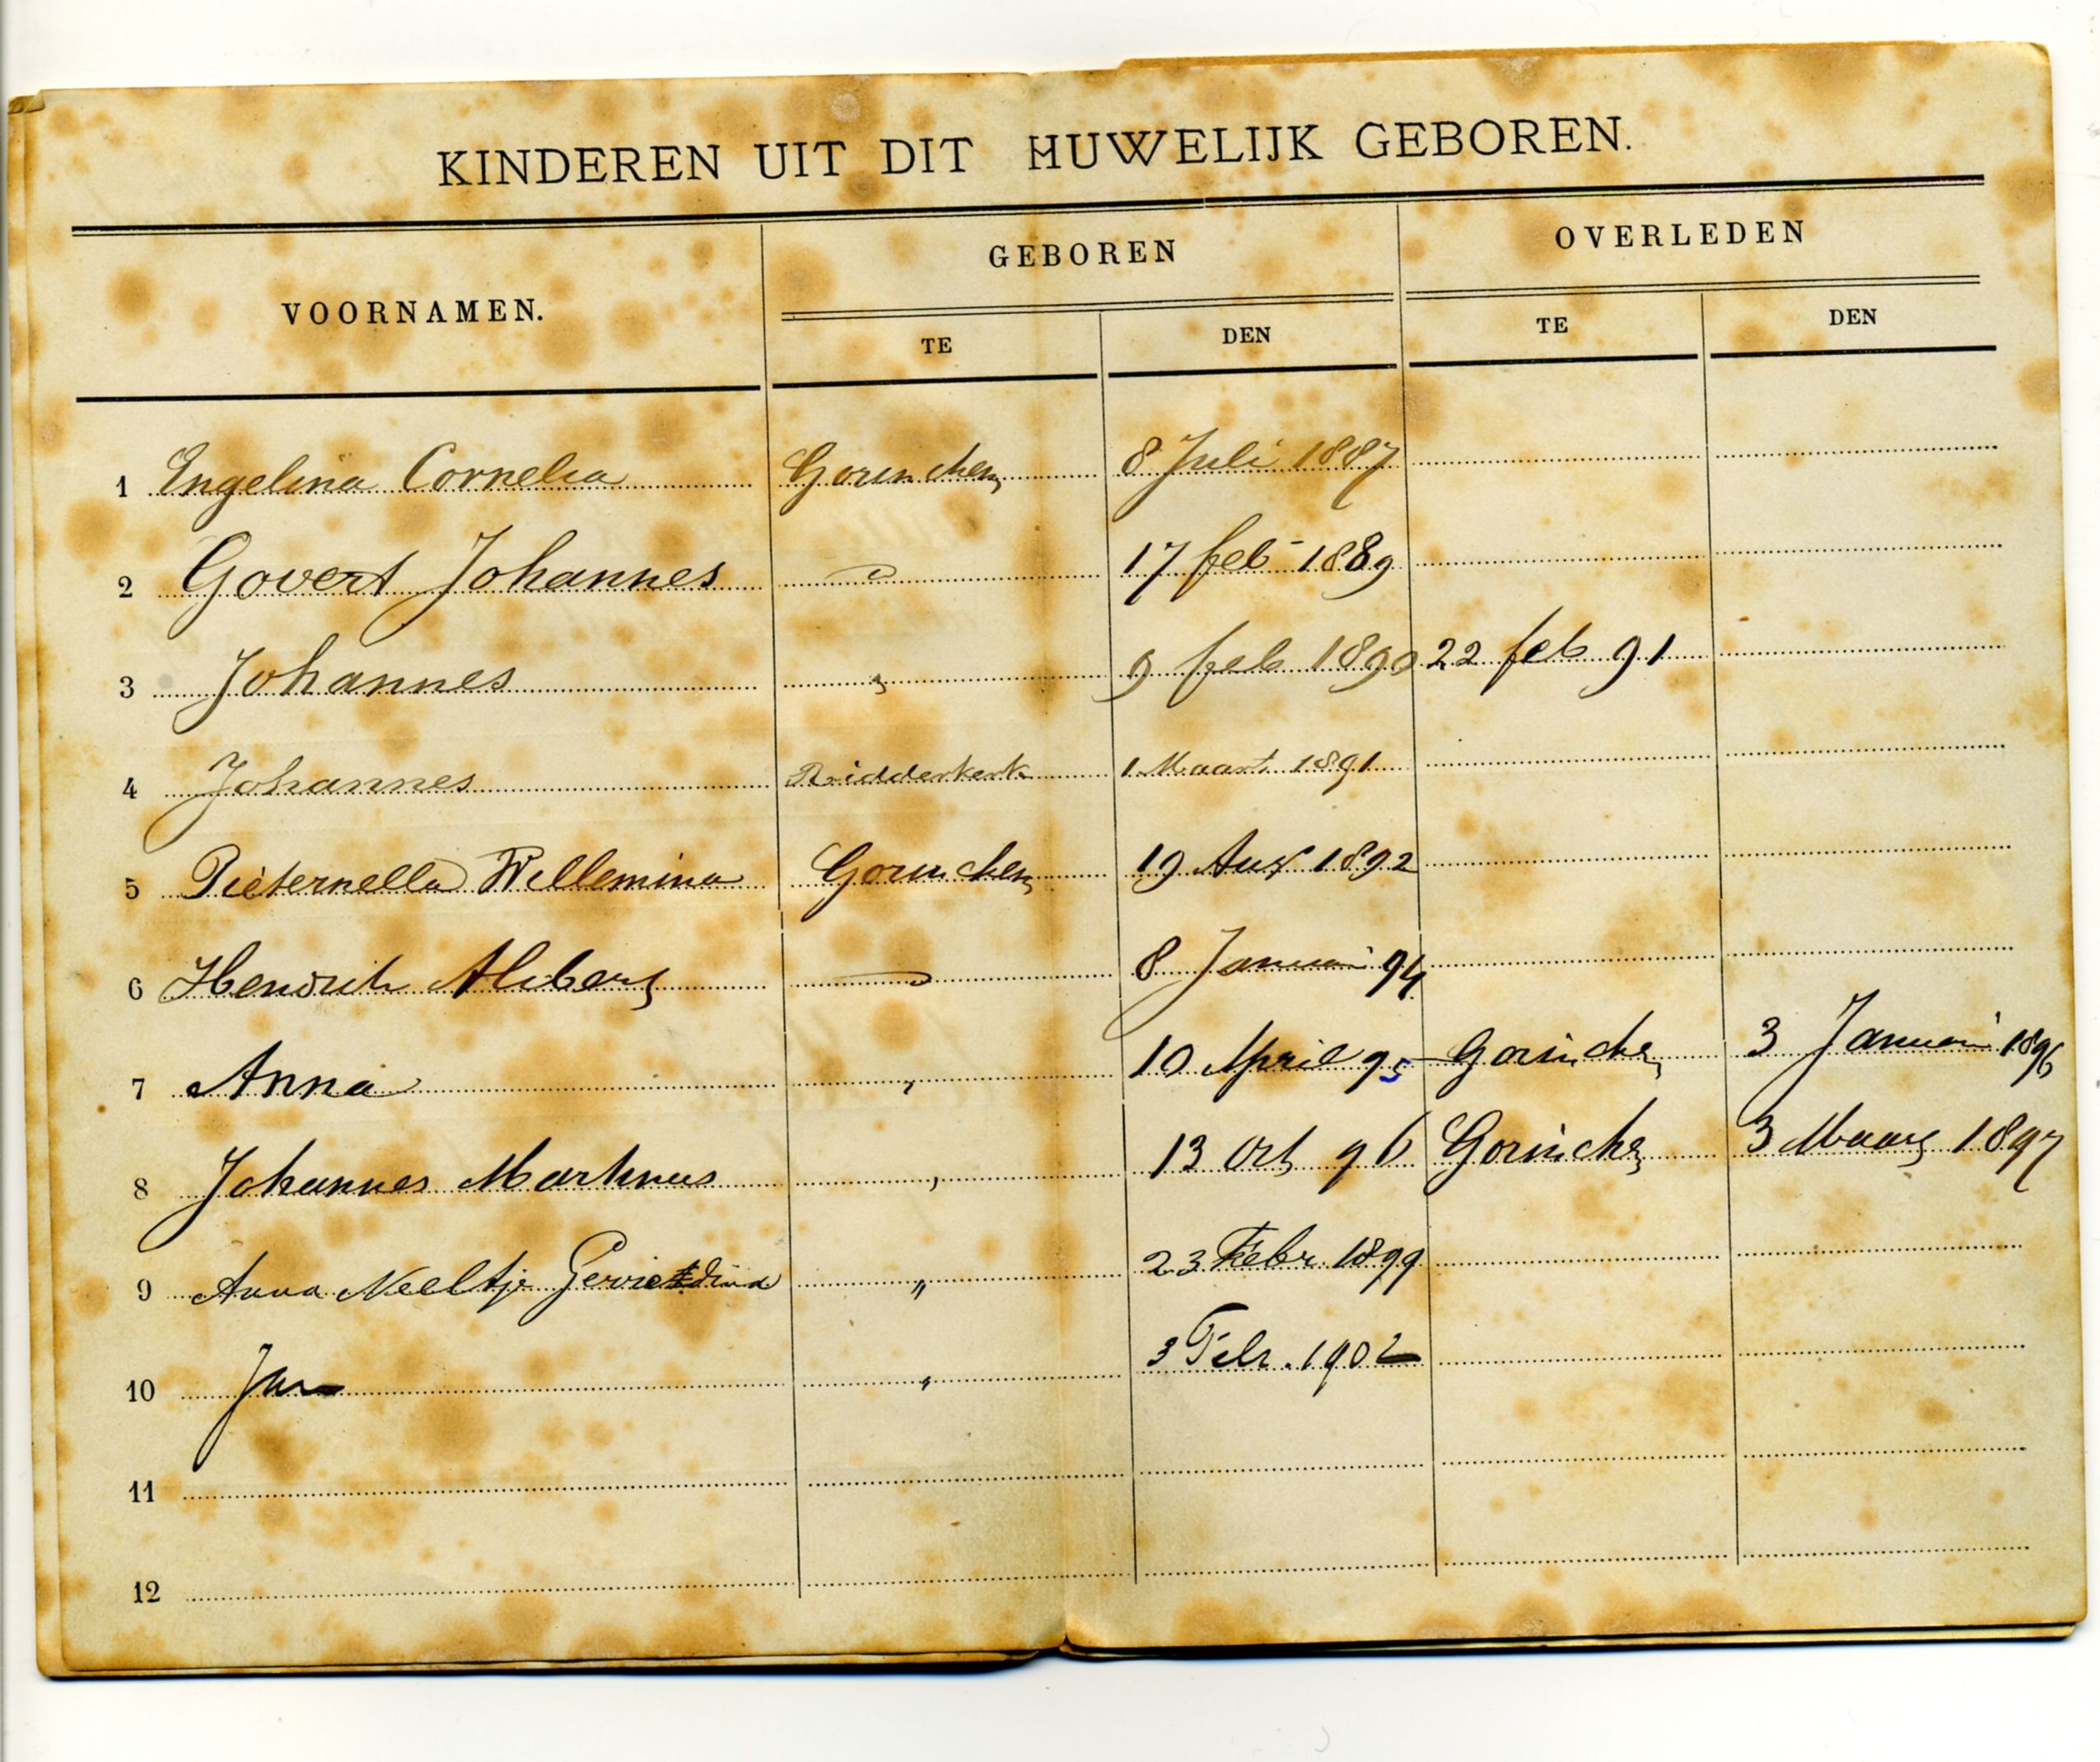 KINDEREN UIT DIT HUWELIJK GEBOREN.
VOORNAMEN. GEBOREN OVERLEDEN
TE DEN TE DEN
1 Engelina Cornelia Gorinchem 8 Juli 1887
2 Govert Johannes 17 feb 1889
3 Johannes " 9 feb 1890 22 feb 91
4 Johannes Ridderkerk 1 Maart 1891
5 Pieternella Willemina Gorinchem 19 Aug 1892
6 Hendrik Albert 8 Januari 94
7 Anna " 10 April 95 Gorinchem 3 Januari 1896
8 Johannes Martinus " 13 Oct 96 Gorinchem 3 Maart 1897
9 Anna Neeltje " 23 Febr. 1899
10 Jan " 3 Febr. 1902
11
12